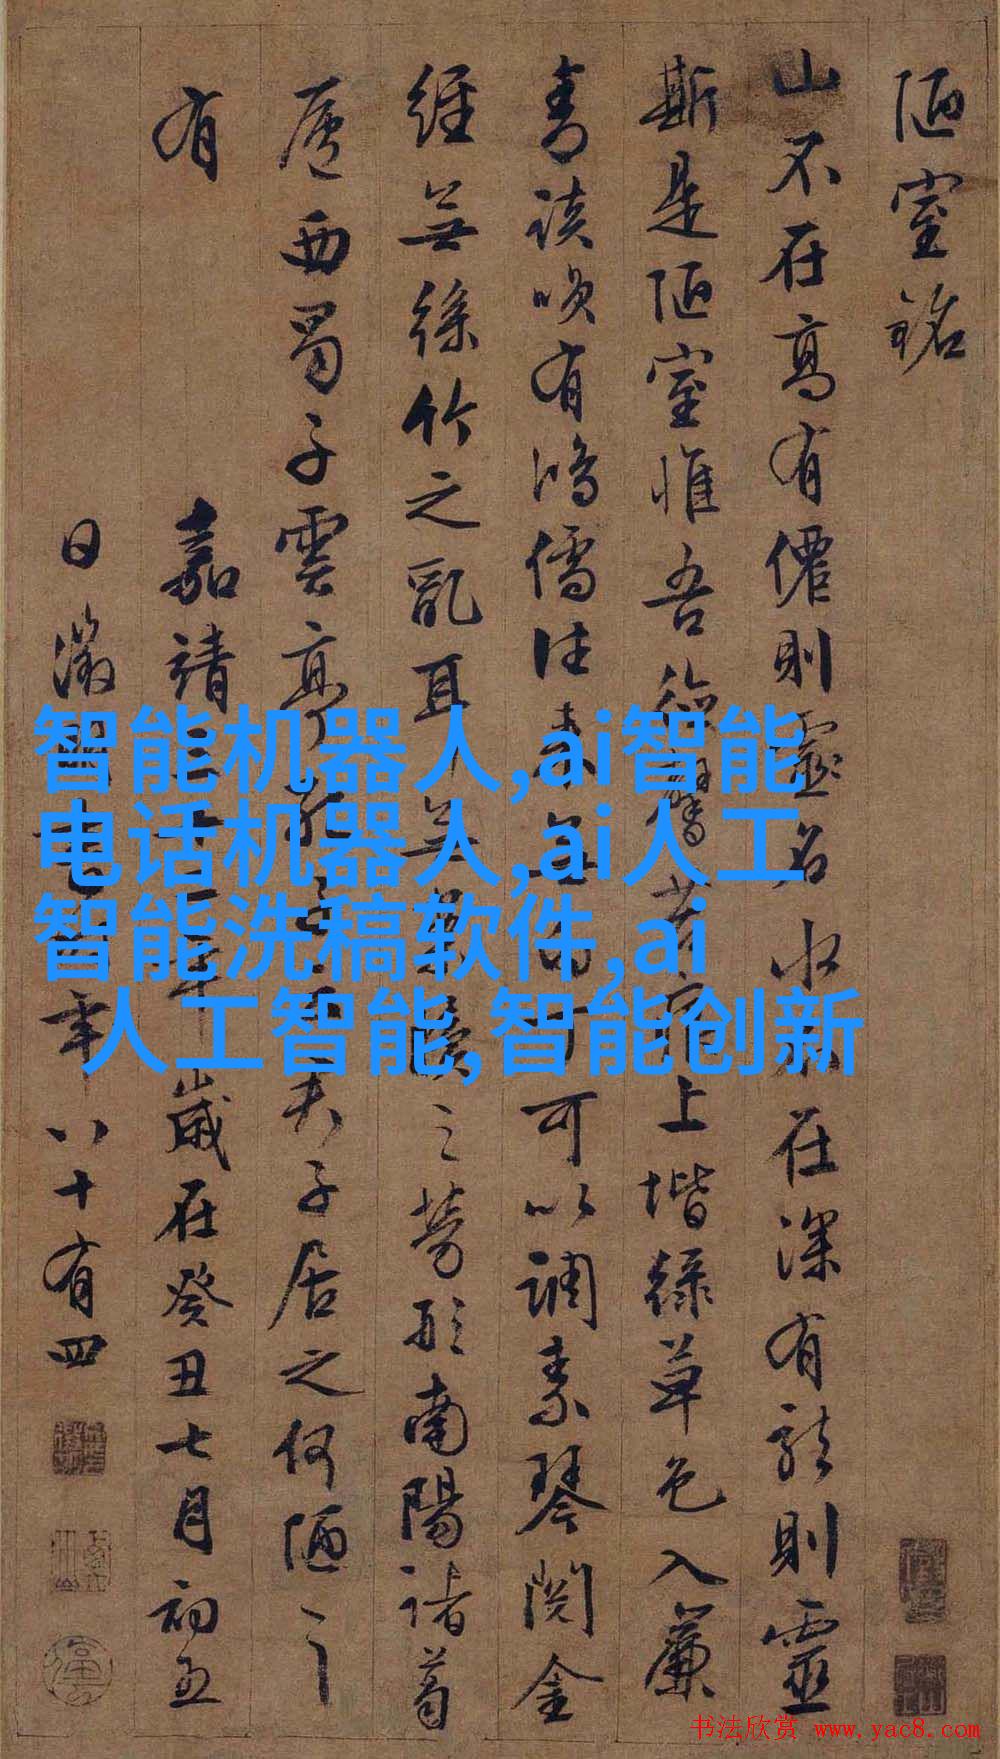 陋室銘
山不在高有僊則靈名水不在深有龍則靈
斯是陋室惟吾德馨苔痕上堦緑草色入簾
青談唤有鴻儒往来無白丁可以調素琴閱金
經無絲竹之亂耳無案牘之勞形南陽諸葛
廬西蜀子雲亭孔子云夫子居之何陋之
有
嘉靖三十二年歲在癸丑七月初五
日徵明年八十有四
智能机器人,ai智能
电话机器人,ai人工
智能洗稿软件,ai
人工智能,智能创新
书法欣赏 www.yac8.com